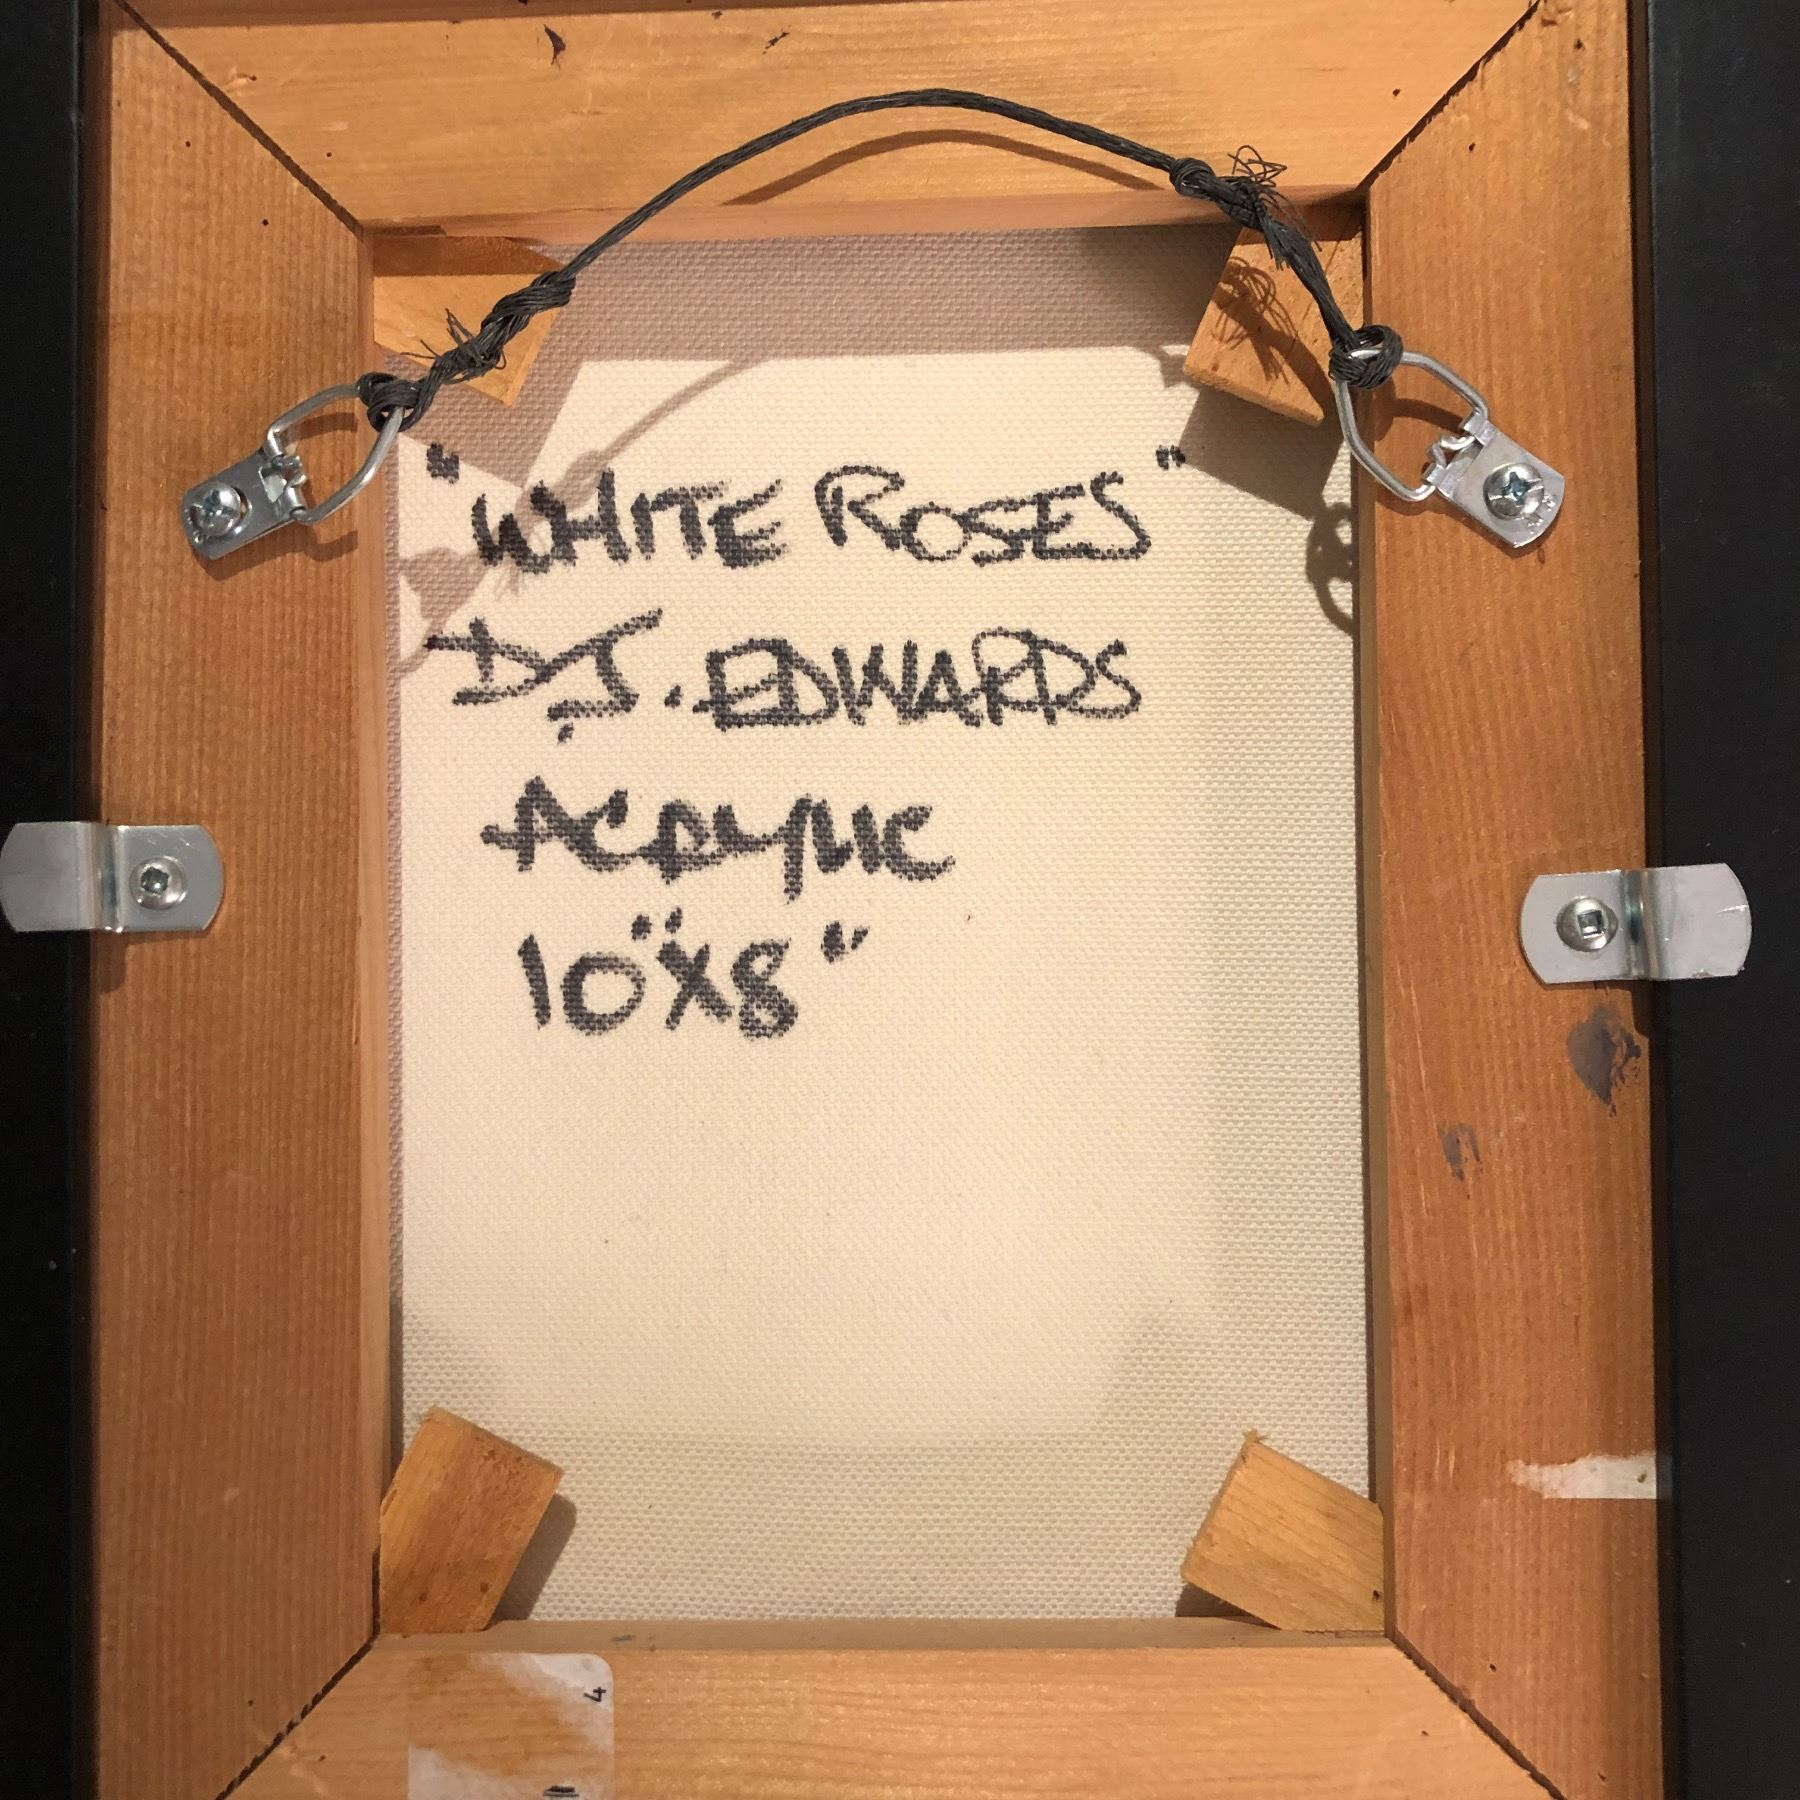 "WHITE ROSES"
D.J. EDWARDS
ACRYLIC
10"X8"
4